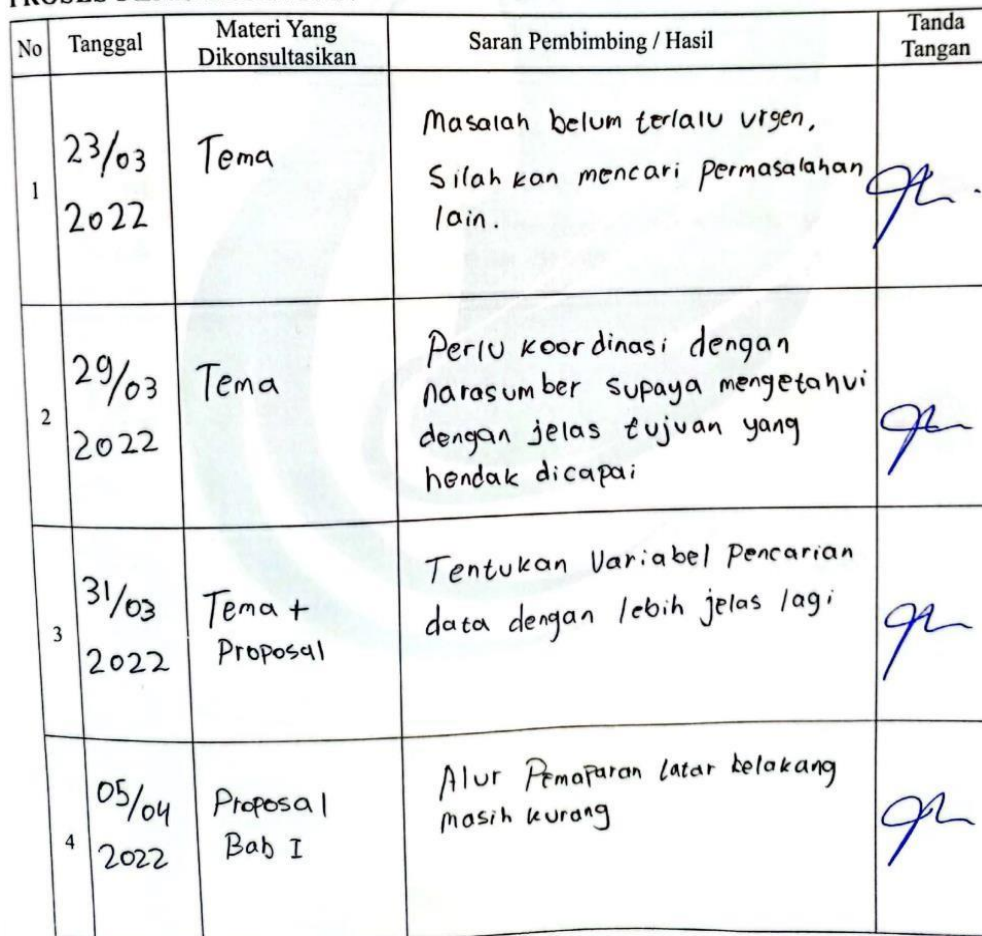 No
Tanggal
Materi Yang
Dikonsultasikan
Saran Pembimbing / Hasil
Tanda
Tangan
1
23/03
2022
Tema
Masalah belum terlalu urgen,
Silah kan mencari permasalahan
lain.
2
29/03
2022
Tema
Perlu koordinasi dengan
narasumber supaya mengetahui
dengan jelas tujuan yang
hendak dicapai
3
31/03
2022
Tema +
Proposal
Tentukan Variabel Pencarian
data dengan lebih jelas lagi
4
05/04
2022
Proposal
Bab I
Alur Pemaparan latar belakang
masih kurang